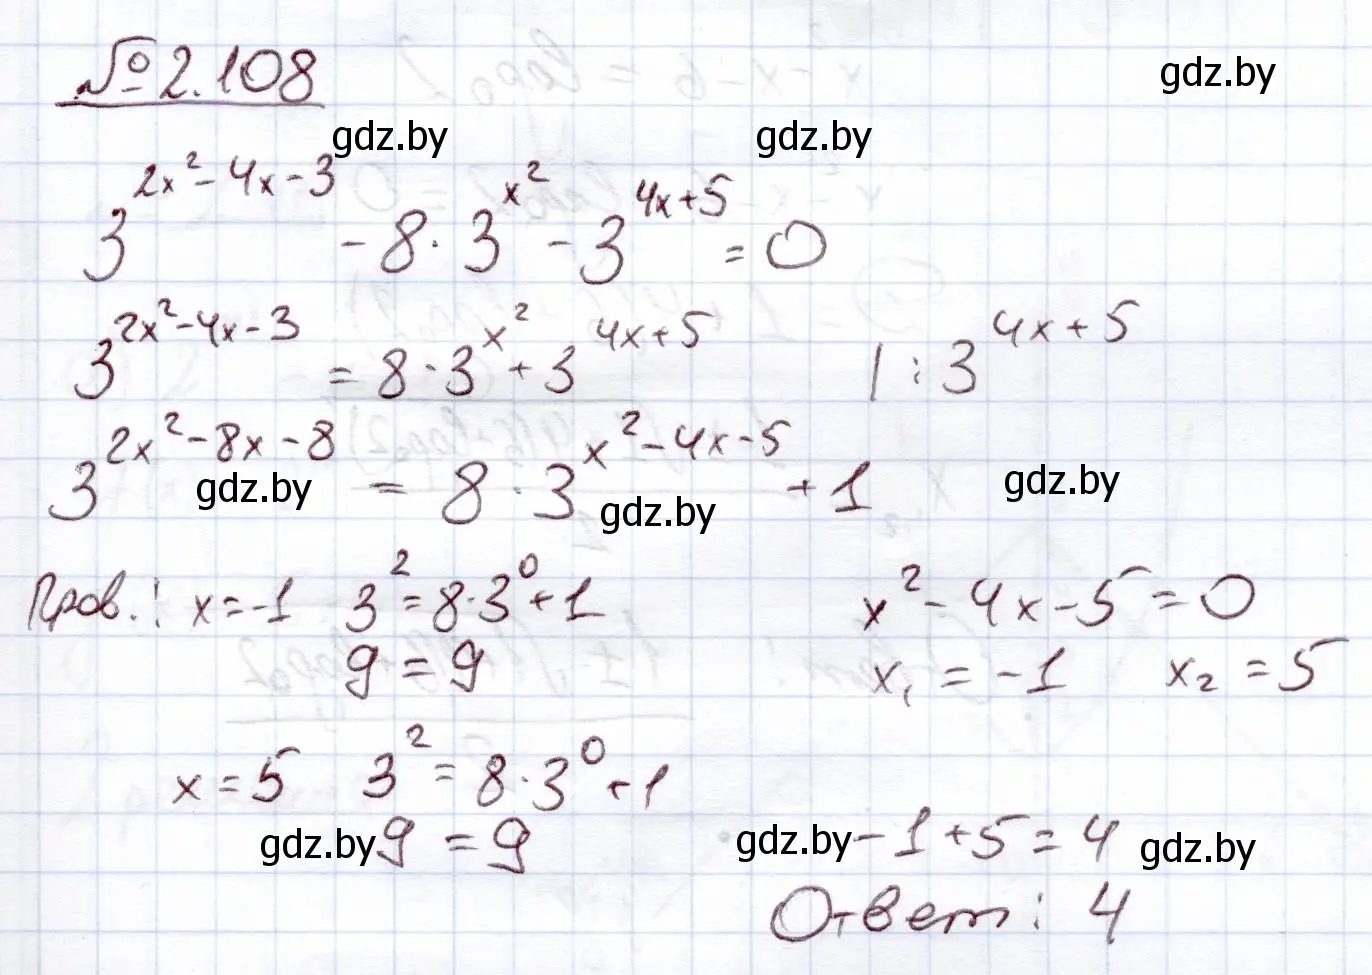 № 2.108
gdz.by
gdz.by gdz.by
3^(2x²-4x-3) - 8·3^(x²) - 3^(4x+5) = 0
3^(2x²-4x-3) = 8·3^(x²) + 3^(4x+5) | : 3^(4x+5)
3^(2x²-8x-8) = 8·3^(x²-4x-5) + 1
gdz.by gdz.by gdz.by
Пров.: x = -1 3² = 8·3⁰ + 1 x² - 4x - 5 = 0
9 = 9 x₁ = -1 x₂ = 5
x = 5 3² = 8·3⁰ + 1
gdz.by 9 = 9 gdz.by -1 + 5 = 4 gdz.by
Ответ: 4